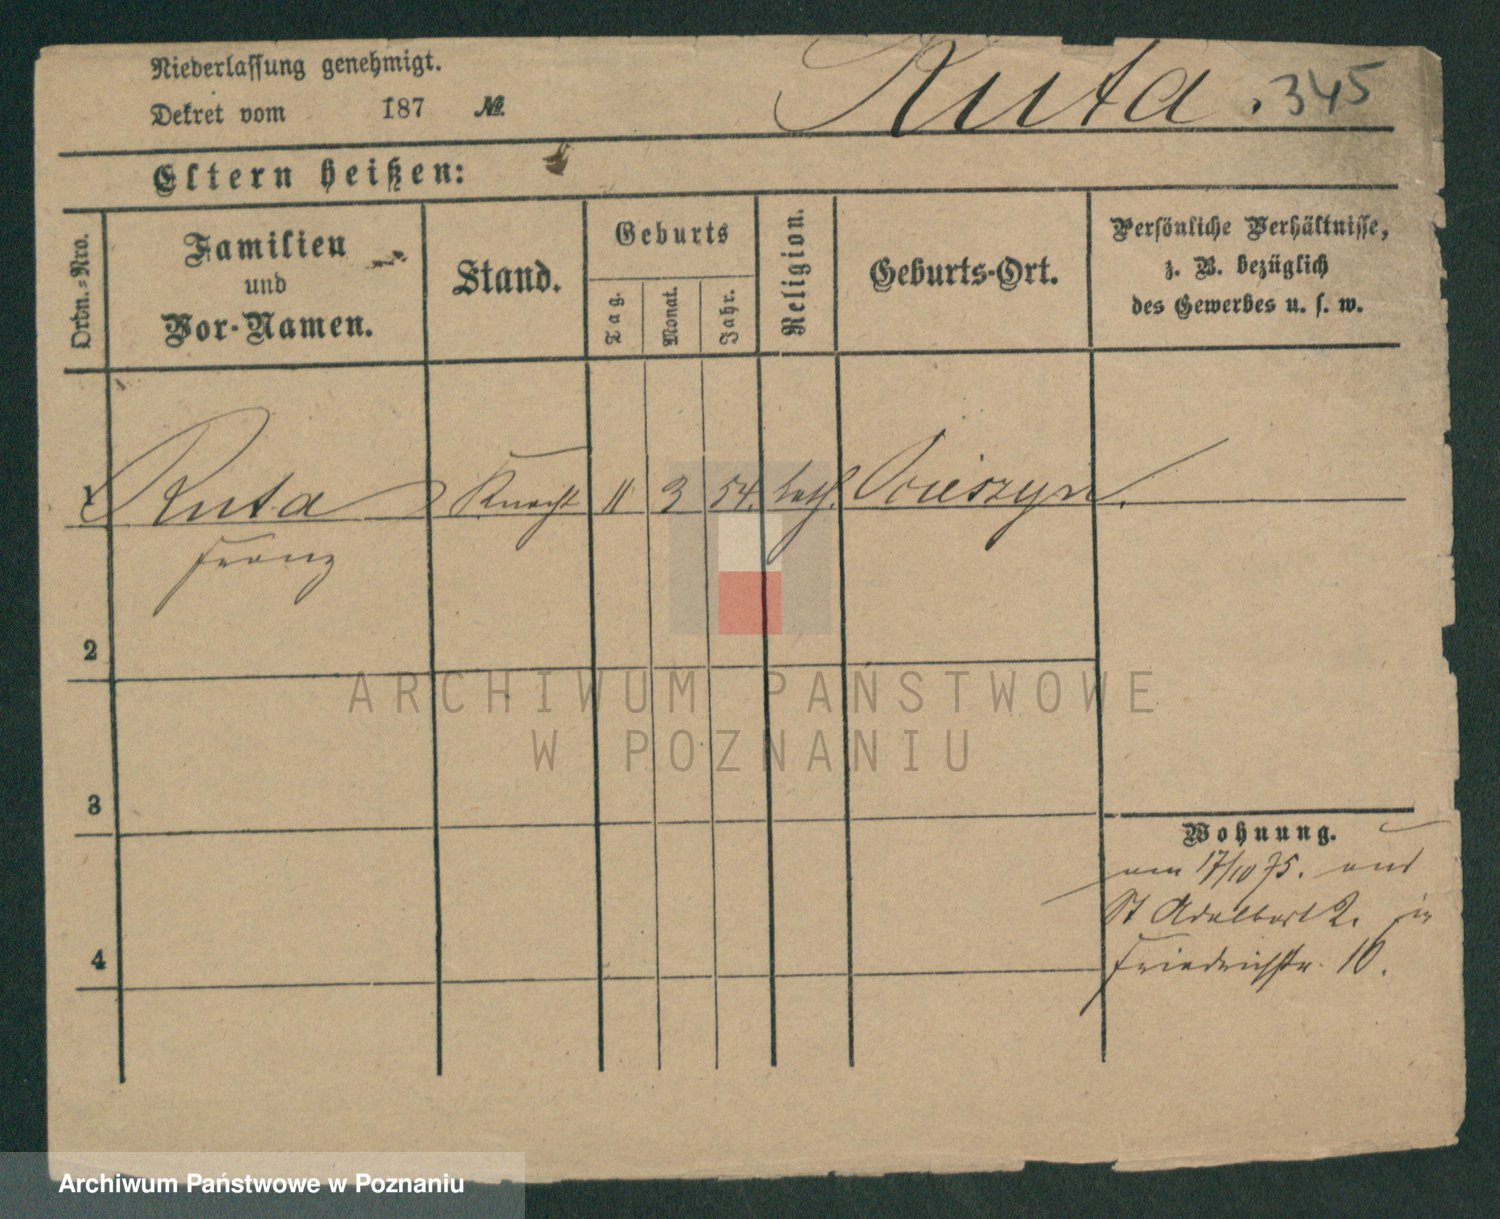 Niederlassung genehmigt.
Dekret vom 187 №
Ruta. 345
Eltern heißen:
Ordn.-Nro.
Familien
und
Vor-Namen.
Stand.
Geburts
Tag.
Monat.
Jahr.
Religion.
Geburts-Ort.
Persönliche Verhältnisse,
z. B. bezüglich
des Gewerbes u. s. w.
1 Ruta Knecht 11 3 54. kath.
Franz
2
3
4
Wohnung.
am 17/10 75. aus
St Adalbert 2. in
Friedrichstr. 10.
ARCHIWUM PAŃSTWOWE
W POZNANIU
Archiwum Państwowe w Poznaniu